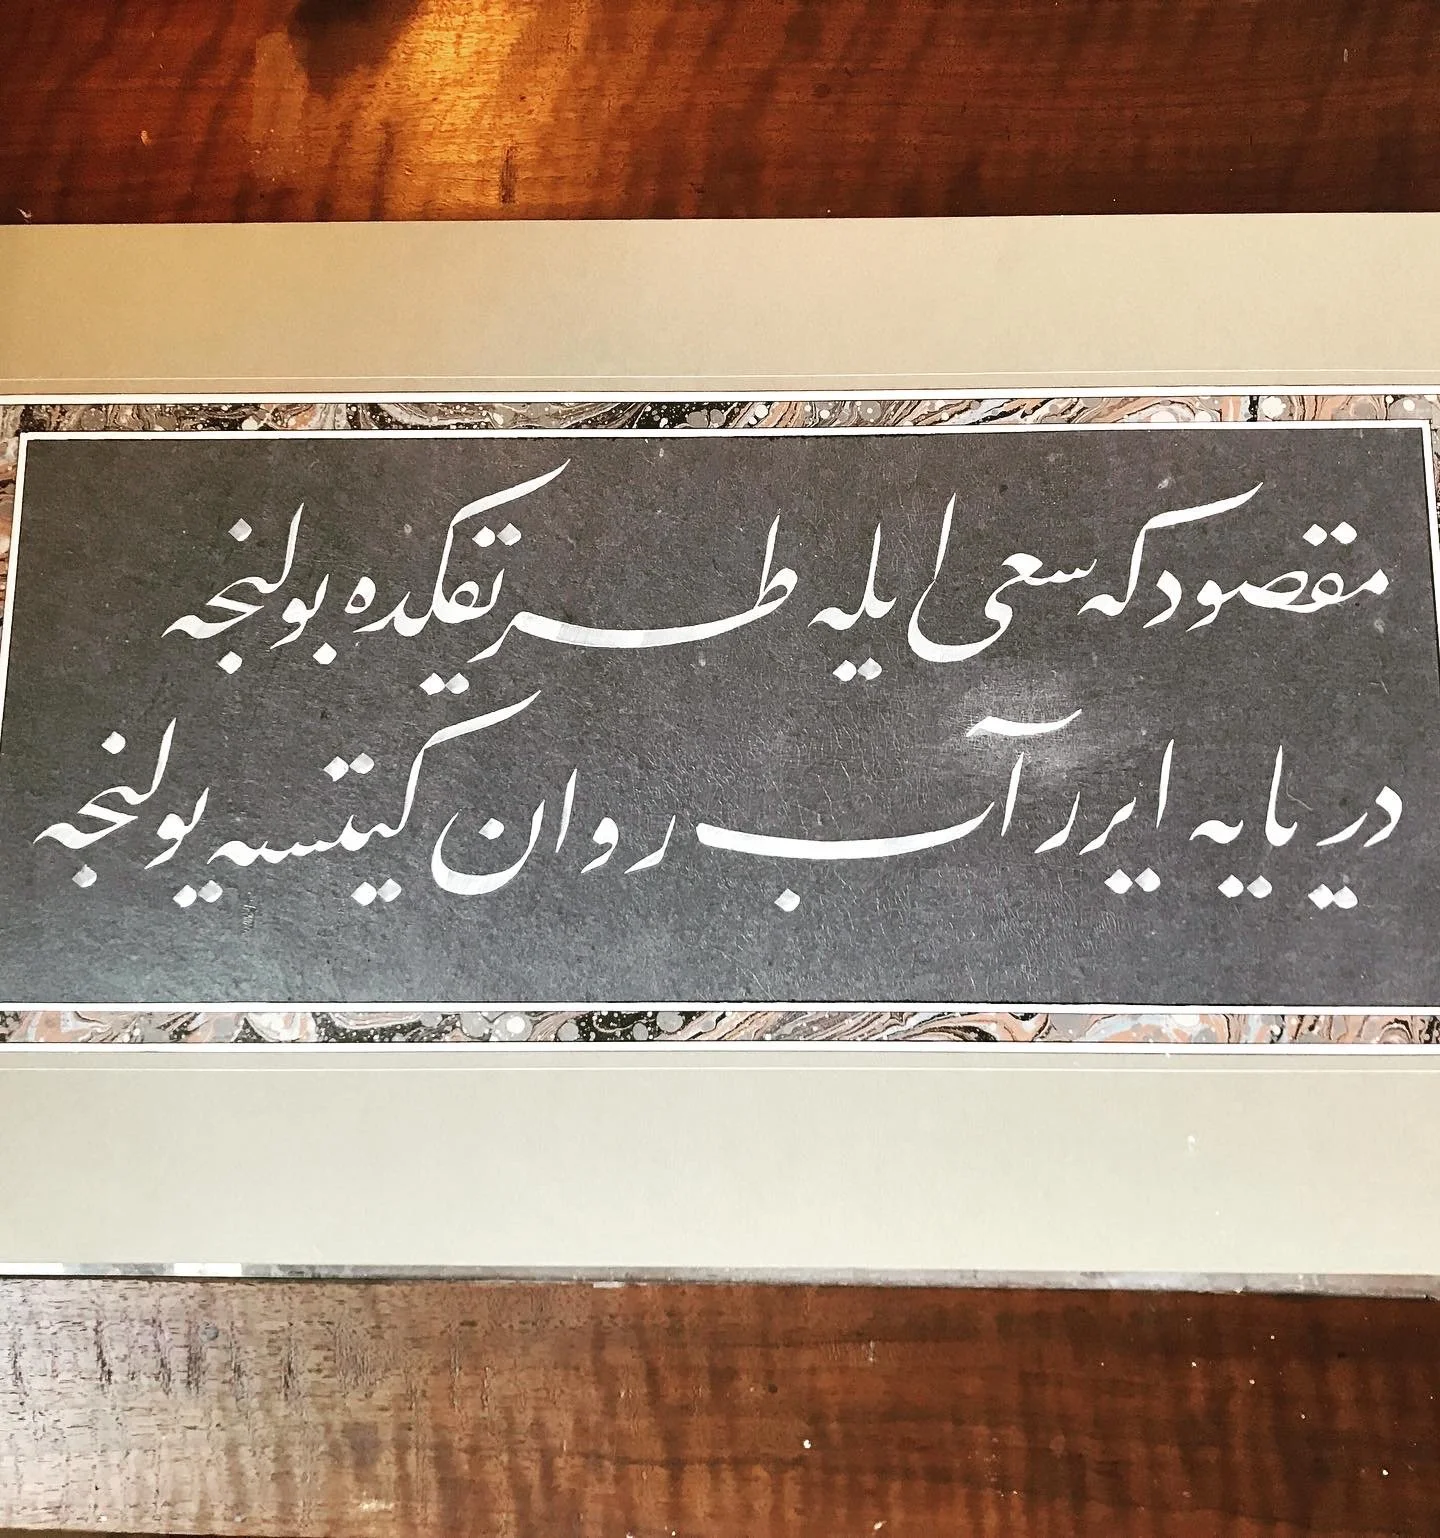 مقصود که سعی ایله طریقکده بولنجه
دریایه ایرر آب روان کیتسه یولنجه